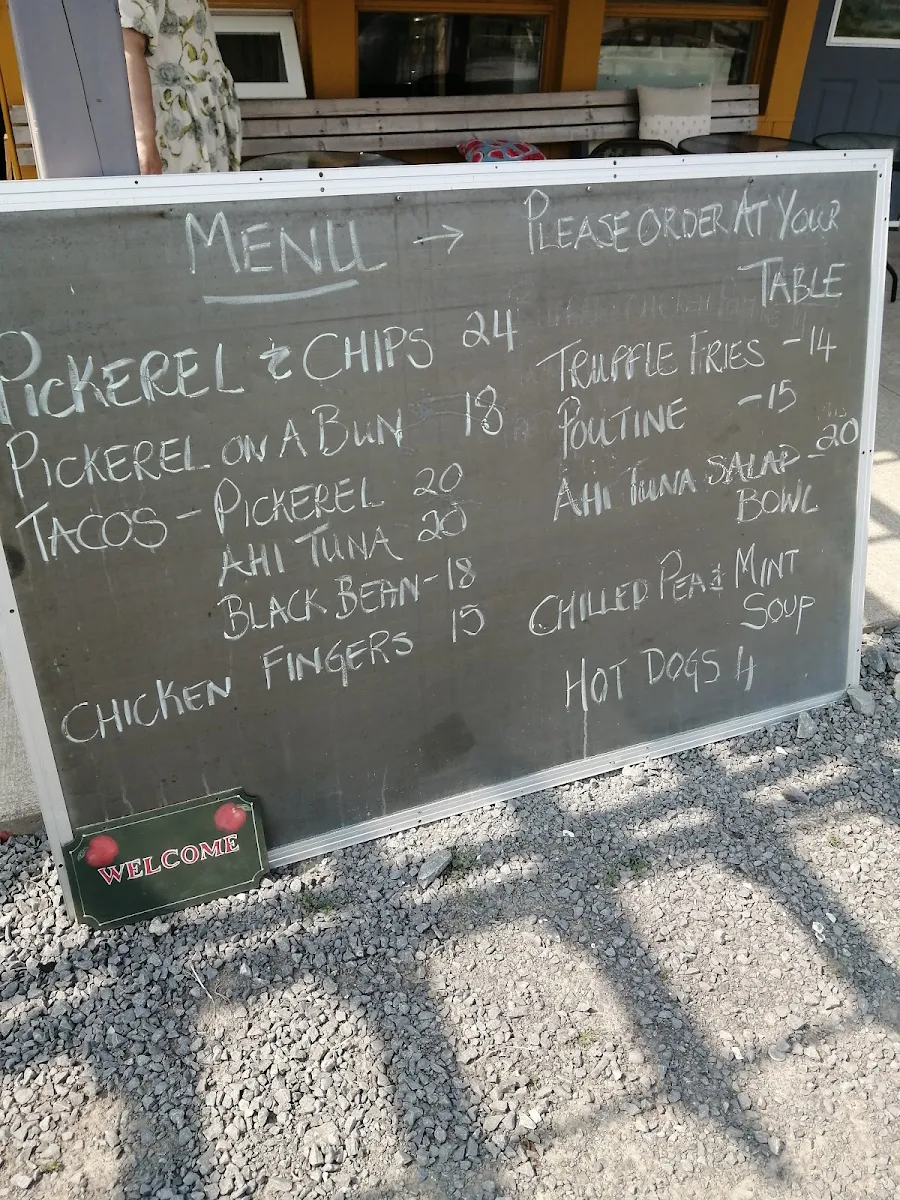 MENU → PLEASE ORDER AT YOUR
TABLE
PICKEREL & CHIPS 24
PICKEREL ON A BUN 18
TACOS - PICKEREL 20
AHI TUNA 20
BLACK BEAN - 18
CHICKEN FINGERS 15
TRUFFLE FRIES - 14
POUTINE - 15
AHI TUNA SALAD - 20
BOWL
CHILLED PEA & MINT
SOUP
HOT DOGS 4
WELCOME